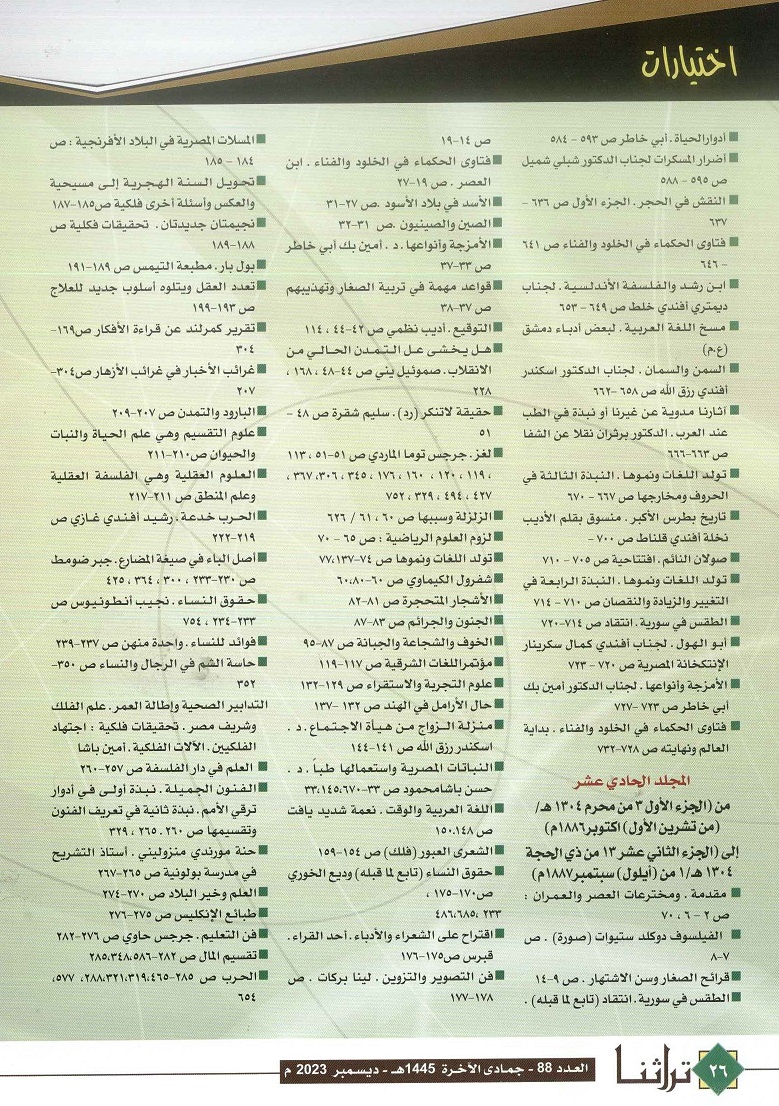 اختيارات
أدوارالحياة . أبي خاطر ص ٥٩٣ - ٥٨٤
أضرار المسكرات لجناب الدكتور شبلي شميل
ص ٥٩٥ - ٥٨٨
النقش في الحجر . الجزء الأول ص ٦٣٦ -
٦٣٧
فتاوى الحكماء في الخلود والفناء ص ٦٤١
- ٦٤٦
ابن رشد والفلسفة الأندلسية . لجناب
ديمتري أفندي خلط ص ٦٤٩ - ٦٥٣
مسخ اللغة العربية . لبعض أدباء دمشق
(ع.م)
السمن والسمان . لجناب الدكتور اسكندر
أفندي رزق الله ص ٦٥٨ -٦٦٢
آثارنا مدوية عن غيرنا أو نبذة في الطب
عند العرب . الدكتور برثران نقلا عن الشفا
ص ٦٦٣-٦٦٦
تولد اللغات ونموها . النبذة الثالثة في
الحروف ومخارجها ص ٦٦٧ - ٦٧٠
تاريخ بطرس الأكبر . منسوق بقلم الأديب
نخلة أفندي قلناط ص ٧٠٠ -
صولان النائم . افتتاحية ص ٧٠٥ - ٧١٠
تولد اللغات ونموها . النبذة الرابعة في
التغيير والزيادة والنقصان ص ٧١٠ - ٧١٤
الطقس في سورية . انتقاد ص ٧١٤-٧٢٠
أبو الهول . لجناب أفندي كمال سكرينار
الإنتكخانة المصرية ص ٧٢٠ - ٧٢٣
الأمزجة وأنواعها . لجناب الدكتور أمين بك
أبي خاطر ص ٧٢٣ -٧٢٧
فتاوى الحكماء في الخلود والفناء . بداية
العالم ونهايته ص ٧٢٨-٧٣٢
المجلد الحادي عشر
من (الجزء الأول ٣ من محرم ١٣٠٤ هـ/
(من تشرين الأول) اكتوبر١٨٨٦م)
إلى (الجزء الثاني عشر ١٣ من ذي الحجة
١٣٠٤ هـ/١ من (أيلول) سبتمبر١٨٨٧م)
مقدمة . ومخترعات العصر والعمران :
ص ٢ - ٦ ، ٧٠
الفيلسوف دوكلد ستيوات (صورة) . ص
٧-٨
قرائح الصغار وسن الاشتهار . ص ٩-١٤
الطقس في سورية . انتقاد (تابع لما قبله) .
ص ١٤-١٩
فتاوى الحكماء في الخلود والفناء . ابن
العصر . ص ١٩-٢٧
الأسد في بلاد الأسود .ص ٢٧-٣١
الصين والصينيون .ص ٣١-٣٢
الأمزجة وأنواعها . د . أمين بك أبي خاطر
ص ٣٣-٣٧
قواعد مهمة في تربية الصغار وتهذيبهم
ص ٣٧-٣٨
التوقيع . أديب نظمي ص ٤٢-٤٤ ، ١١٤
هل يخشى عل التمدن الحالي من
الانقلاب . صموئيل يني ص ٤٤-٤٨ ، ١٦٨ ،
٢٢٨
حقيقة لاتنكر (رد) . سليم شقرة ص ٤٨ -
٥١
لغز . جرجس توما الماردي ص ٥١-٥١ ، ١١٣
، ١١٩ ، ١٢٠ ، ١٦٠ ، ١٧٦ ، ٣٤٥ ، ٣٠٦ ، ٣٦٧ ،
٤٢٧ ، ٤٩٤ ، ٣٢٩ ، ٧٥٢
الزلزلة وسببها ص ٦٠ ، ٦١ / ٦٢٦
لزوم العلوم الرياضية : ص ٦٥ - ٧٠
تولد اللغات ونموها ص ٧٤-٧٧،١٣٧
شفرول الكيماوي ص ٦٠-٦٠،٨٠
الأشجار المتحجرة ص ٨١-٨٢
الجنون والجرائم ص ٨٣-٨٧
الخوف والشجاعة والجبانة ص ٨٧-٩٥
مؤتمراللغات الشرقية ص ١١٧-١١٩
علوم التجربة والاستقراء ص ١٢٩-١٣٢
حال الأرامل في الهند ص ١٣٢ -١٣٧
منزلة الزواج من هيأة الاجتماع . د .
اسكندر رزق الله ص ١٤١-١٤٤
النباتات المصرية واستعمالها طباً . د .
حسن باشامحمود ص ٣٣-٣٣،١٤٥،٦٧٠
اللغة العربية والوقت . نعمة شديد يافت
ص ١٥٠،١٤٨
الشعرى العبور (فلك) ص ١٥٤-١٥٩
حقوق النساء (تابع لما قبله) وديع الخوري
ص١٧٠-١٧٥ ،
٢٣٣ ،٤٨٦،٦٨٥
اقتراح على الشعراء والأدباء . أحد القراء .
قبرس ص١٧٥-١٧٦
فن التصوير والتزوين . لينا بركات . ص
١٧٧-١٧٨
المسلات المصرية في البلاد الأفرنجية : ص
١٨٤ - ١٨٥
تحويل السنة الهجرية إلى مسيحية
والعكس وأسئلة أخرى فلكية ص١٨٥-١٨٧
نجيمتان جديدتان . تحقيقات فكلية ص
١٨٨-١٨٩
بول بار . مطبعة التيمس ص ١٨٩-١٩١
تعدد العقل ويتلوه أسلوب جديد للعلاج
ص ١٩٣-١٩٩
تقرير كمرلند عن قراءة الأفكار ص١٦٩-
٣٠٤
غرائب الأخبار في غرائب الأزهار ص٣٠٤-
٢٠٧
البارود والتمدن ص ٢٠٧-٢٠٩
علوم التقسيم وهي علم الحياة والنبات
والحيوان ص٢١٠-٢١١
العلوم العقلية وهي الفلسفة العقلية
وعلم المنطق ص ٢١١-٢١٧
الحرب خدعة . رشيد أفندي غازي ص
٢١٩-٢٢٢
أصل الباء في صيغة المضارع . جبر ضومط
ص ٢٣٠-٢٣٣ ، ٣٠٠ ، ٣٦٤ ، ٤٢٥
حقوق النساء . نجيب أنطونيوس ص
٢٣٣-٢٣٤ ، ٧٥٤
فوائد للنساء . واحدة منهن ص ٢٣٧-٢٣٩
حاسة الشم في الرجال والنساء ص ٣٥٠-
٣٥٢
التدابير الصحية وإطالة العمر . علم الفلك
وشريف مصر . تحقيقات فلكية : اجتهاد
الفلكيين . الآلات الفلكية . أمين باشا
العلم في دار الفلسفة ص ٢٥٧-٢٦٠
الفنون الجميلة . نبذة أولى في أدوار
ترقي الأمم . نبذة ثانية في تعريف الفنون
وتقسيمها ص ٢٦٠ ، ٢٦٥ ، ٣٢٩
حنة مورندي منزوليني . أستاذ التشريح
في مدرسة بولونية ص ٢٦٥-٢٦٧
العلم وخير البلاد ص ٢٧٠-٢٧٤
طبائع الإنكليس ص ٢٧٥-٢٧٦
فن التعليم . جرجس حاوي ص ٢٧٦-٢٨٢
تقسيم المال ص ٢٨٢-٢٨٥،٣٤٨،٥٨٦
الحرب ص ٢٨٥-٢٨٨،٣٢١،٣١٩،٤٦٥ ، ٥٧٧،
٦٥٤
٢٦
تراثنا
العدد 88 - جمادى الأخرة 1445هـ - ديسمبر 2023 م